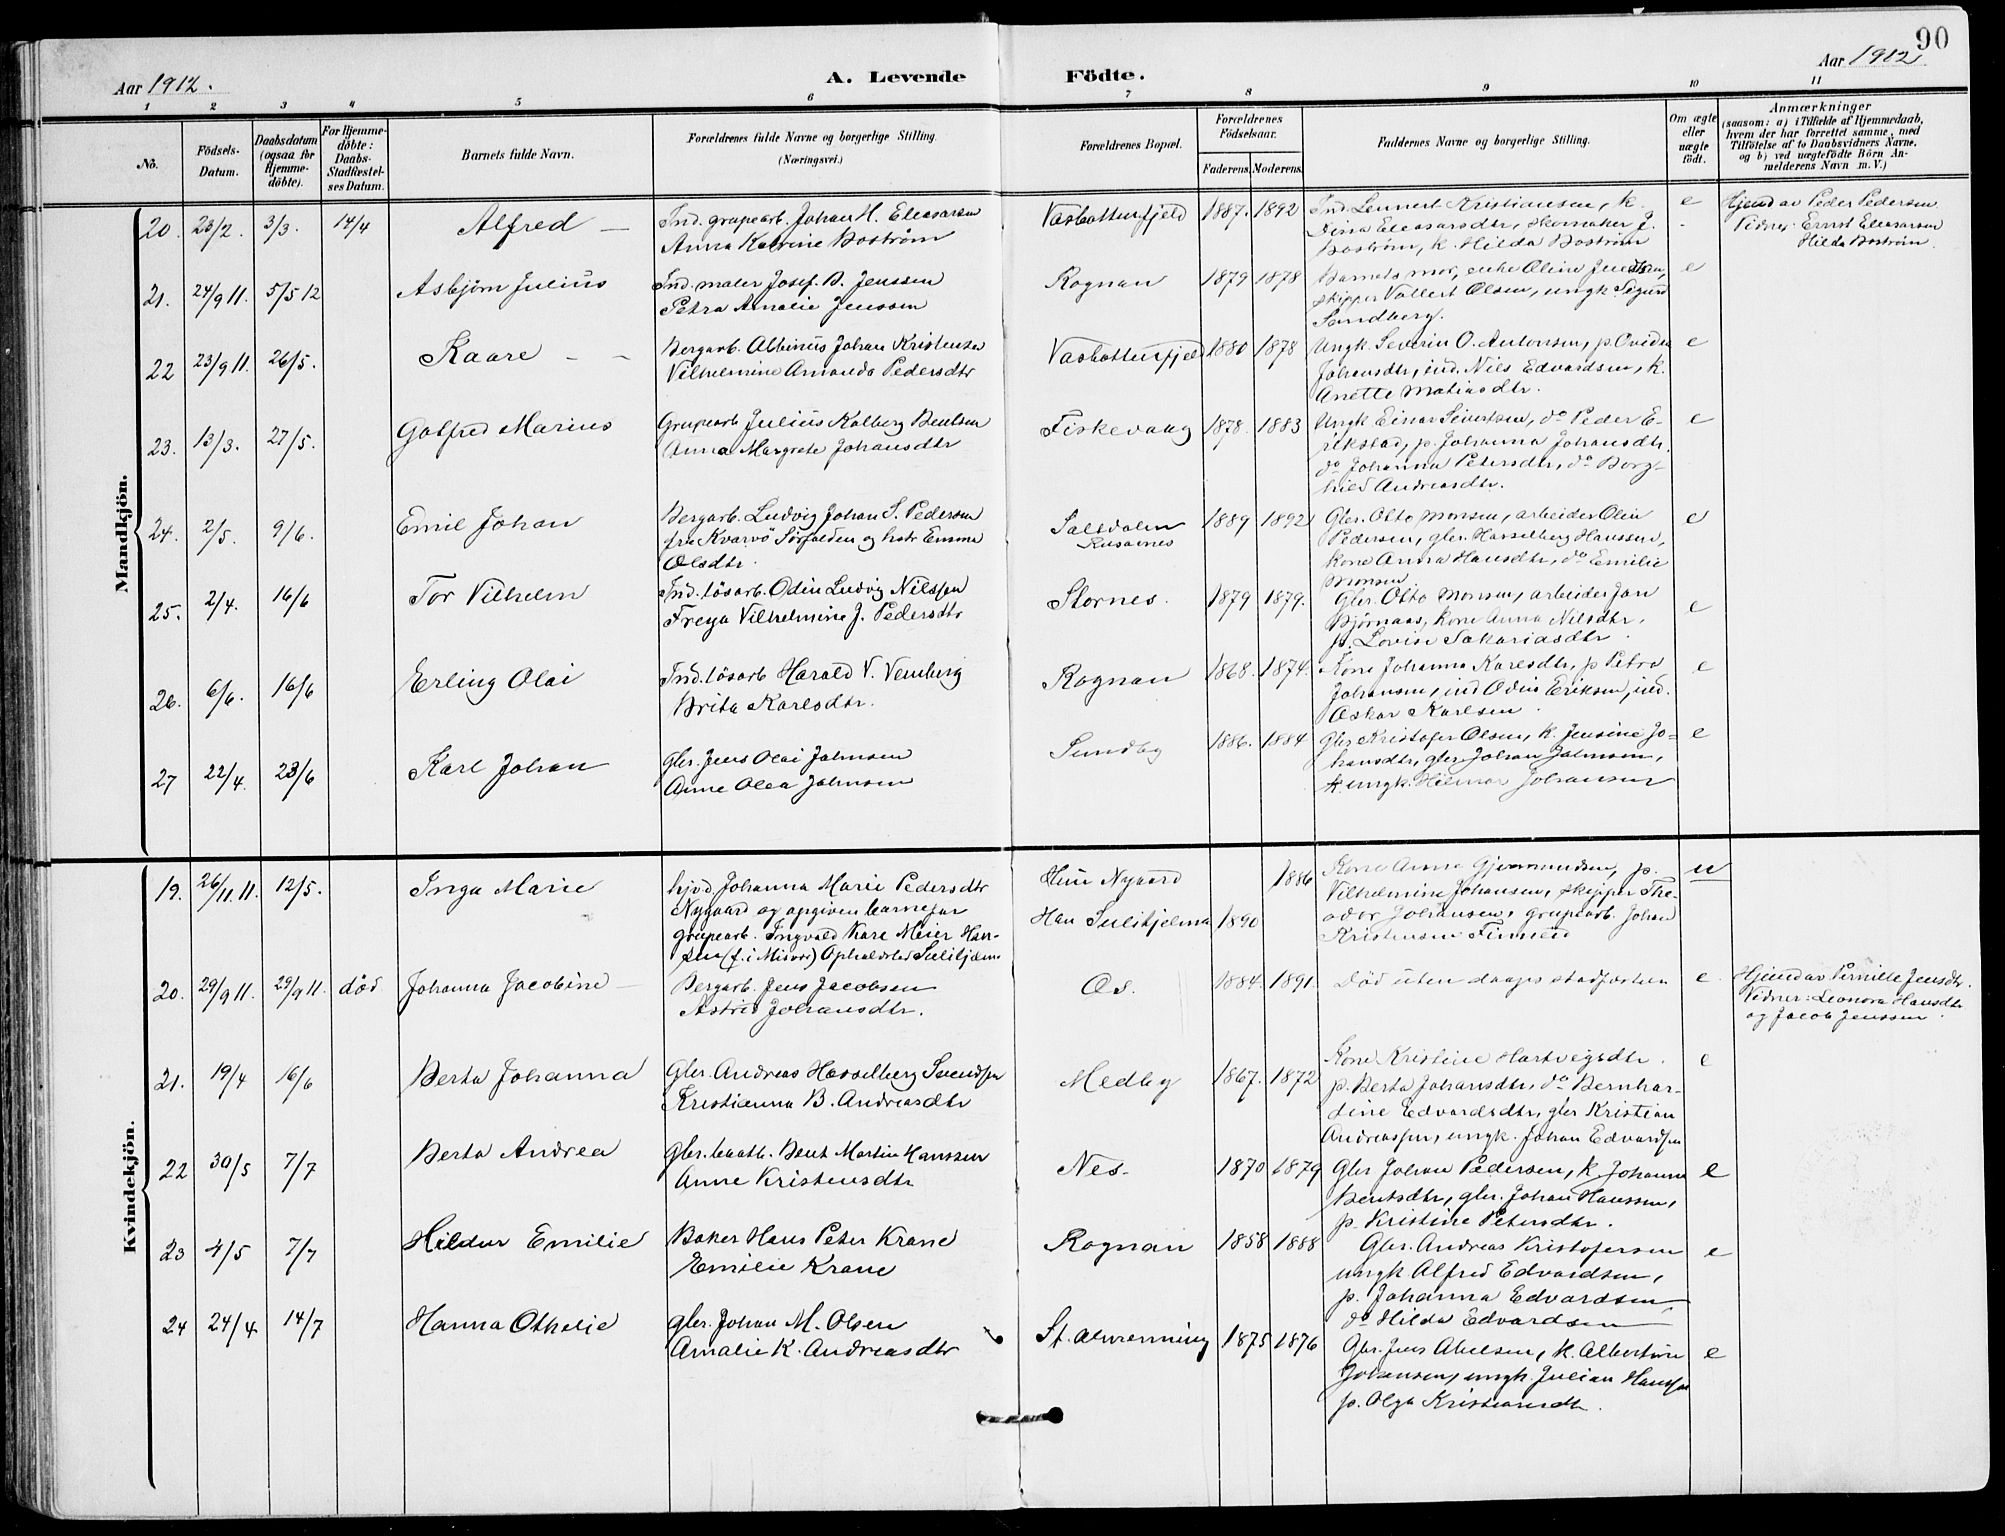 90
Aar 1912.
A. Levende
Födte.
Aar 1912
1 2 3 4 5 6 7 8 9 10 11
Nô.
Födsels-
Datum.
Daabsdatum
(ogsaa for
Hjemme-
döbte).
For Hjemme-
döbte:
Daabs-
Stadfestel-
ses Datum.
Barnets fulde Navn.
Forældrenes fulde Navne og borgerlige Stilling.
(Næringsvei.)
Forældrenes Bopæl.
Forældrenes
Födselsaar.
Faderens.
Moderens.
Faddernes Navne og borgerlige Stilling.
Om ægte
eller
uægte
födt.
Anmærkninger
(saasom: a) i Tilfælde af Hjemmedaab,
hvem der har forrettet samme, med
Tilföielse af to Daabsvidners Navne,
og b) ved uægtefödte Börn An-
melderens Navn m. V.)
Mandkjön.
20. 23/2. 3/3. 14/4 Alfred
Ind. grupearb. Johan H. Eleasarsen
Anna Katrine Boström
Vasbottenfjeld 1887. 1892
Ind. Lennert Kristiansen, k.
Dina Eleasarsdtr, skomaker J.
Boström, k. Hilda Boström
e
Hjemd av Peder Pedersen
Vidner: Ernst Eleasarsen
Hilda Boström.
21. 24/9 11. 5/5 12 Asbjörn Julius
Ind. maler Josef. B. Jenssen
Petra Amalie Jenssen
Rognan 1879 1878
Barnets mor, enke Oline Jenssen,
skipper Vallert Olsen, ungk. Sigurd
Sandberg.
e
22 23/9 11. 26/5. Kaare
Bergarb. Albinus Johan Kristensen
Vilhelmine Amanda Pedersdtr
Vasbottenfjeld 1880 1878
Ungk. Severin O. Antonsen, p. Ovidia
Johansdtr, ind. Nils Edvardsen, k.
Anette Matiasdtr.
e
23. 13/3. 27/5. Gotfred Marius
Grupearb Julius Kolberg Bentsen
Anna Margrete Johansdtr
Fiskevaag 1878. 1883
Ungk Einar Sivertsen, do Peder E-
rikstad, p. Johanna Johansdtr.
do Johanna Petersdtr, do Borg-
hild Andreasdtr.
e
24. 2/5. 9/6. Emil Johan
Bergarb. Ludvig Johan S. Pedersen
fra Kvarvö Sörfolden og hstr Emma
Olsdtr.
Saltdalen
Rusaanes
1889 1892
Gbr. Otto Monsen, arbeider Olin
Pedersen, gbr. Hasselberg Hanssen,
kone Anna Hansdtr, do Emilie
Monsen
e
25. 2/4. 16/6 Tor Vilhelm
Ind. lösarb. Odin Ludvig Nilssen
Freya Vilhelmine J. Pedersdtr
Stornes. 1879 1879.
Gbr. Otto Monsen, arbeider Jan
Björnaas, kone Anna Nilsdtr,
p. Lovise Sakariasdtr.
e
26. 6/6. 16/6 Erling Olai
Ind. lösarb Harald V. Vemberg
Brita Karlsdtr.
Rognan 1868. 1874.
Kone Johanna Karlsdtr, p Petra
Johansen, ind Odin Eriksen, ind.
Oskar Karlsen.
e
27 22/4. 23/6 Karl Johan
Gbr. Jens Olai Jahnsen
Anne Olea Jahnsen
Sundby 1886. 1884
Gbr Kristofer Olsen, k. Jensine Jo-
hansdtr, gbr. Johan Jahnsen,
ungk. Hilmar Johansen
e
Kvindekjön.
19. 26/11 11. 12/5. Inga Marie
hjvd. Johanna Marie Pedersdtr
Nygaard og opgiven barnefar
grupearb. Ingvald Kare Meier Han-
sen (f. i Misvær) Opholdsted Sulitjelma
Hun Nygaard
Han Sulitjelma 1890
1886
Kone Anna Gjermundsen, p.
Vilhelmine Johansen, skipper The-
odor Johansen, grupearb. Johan
Kristensen Finneid
u
20. 29/9 11. 29/9 11. död Johanna Jacobine
Bergarb. Jens Jacobsen
Astrid Johansdtr.
Os. 1884. 1891.
Död uten daaps stadfæstelse
e.
Hjemd av Pernille Jensdtr.
Vidner: Leonora Hansdtr
og Jacob Jenssen.
21. 19/4 16/6 Berta Johanna
Gbr. Andreas Hasselberg Svendsen
Kristianna B. Andreasdtr
Medby 1867. 1872
Kone Kristine Hartvigsdtr.
p. Berta Johansdtr, do Bernhar-
dine Edvardsdtr, gbr Kristian
Andreassen, ungk. Johan Edvardsen
e
22 30/5 7/7 Berta Andrea
Gbr. baatb. Bent Martin Hanssen
Anne Kristensdtr
Nes. 1870 1879
Gbr Johan Pedersen, k Johanna
Bentsdtr, gbr. Johan Hanssen,
p. Kristine Petersdtr.
e
23 4/5 7/7 Hildur Emilie
Baker Hans Peter Krane
Emilie Krane
Rognan 1858 1888
Gbr. Andreas Kristofersen
ungk Alfred Edvardsen,
p. Johanna Edvardsen,
do Hilda Edvardsen
e
24 24/4 14/7 Hanna Othelie
gbr. Johan M. Olsen
Amalie K. Andreasdtr
St. almenning 1875 1876
Gbr. Jens Abelsen, k. Albertine
Johansen, ungk. Julian Hanssen
p. Olga Kristiansdtr.
e